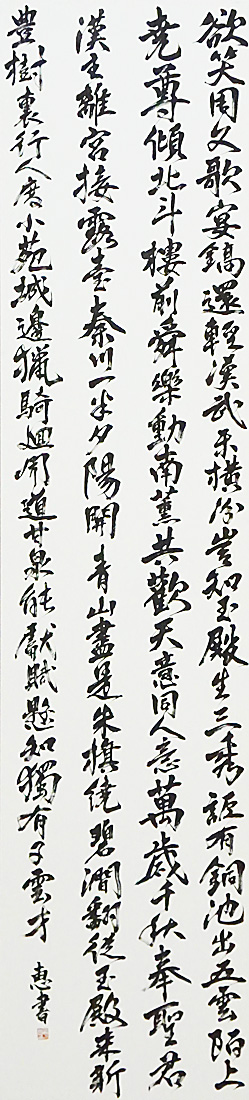 欲笑周文歌宴鎬還輕漢武樂橫汾豈知玉殿生三秀詎有銅池出五雲陌上
堯尊傾北斗樓前舜樂動南薰共歡天意同人意萬歲千秋奉聖君
漢主離宮接露臺秦川一半夕陽開青山盡是朱旗繞碧澗翻從玉殿來新
豐樹裏行人度小苑城邊獵騎迴聞道甘泉能獻賦懸知獨有子雲才
惠書